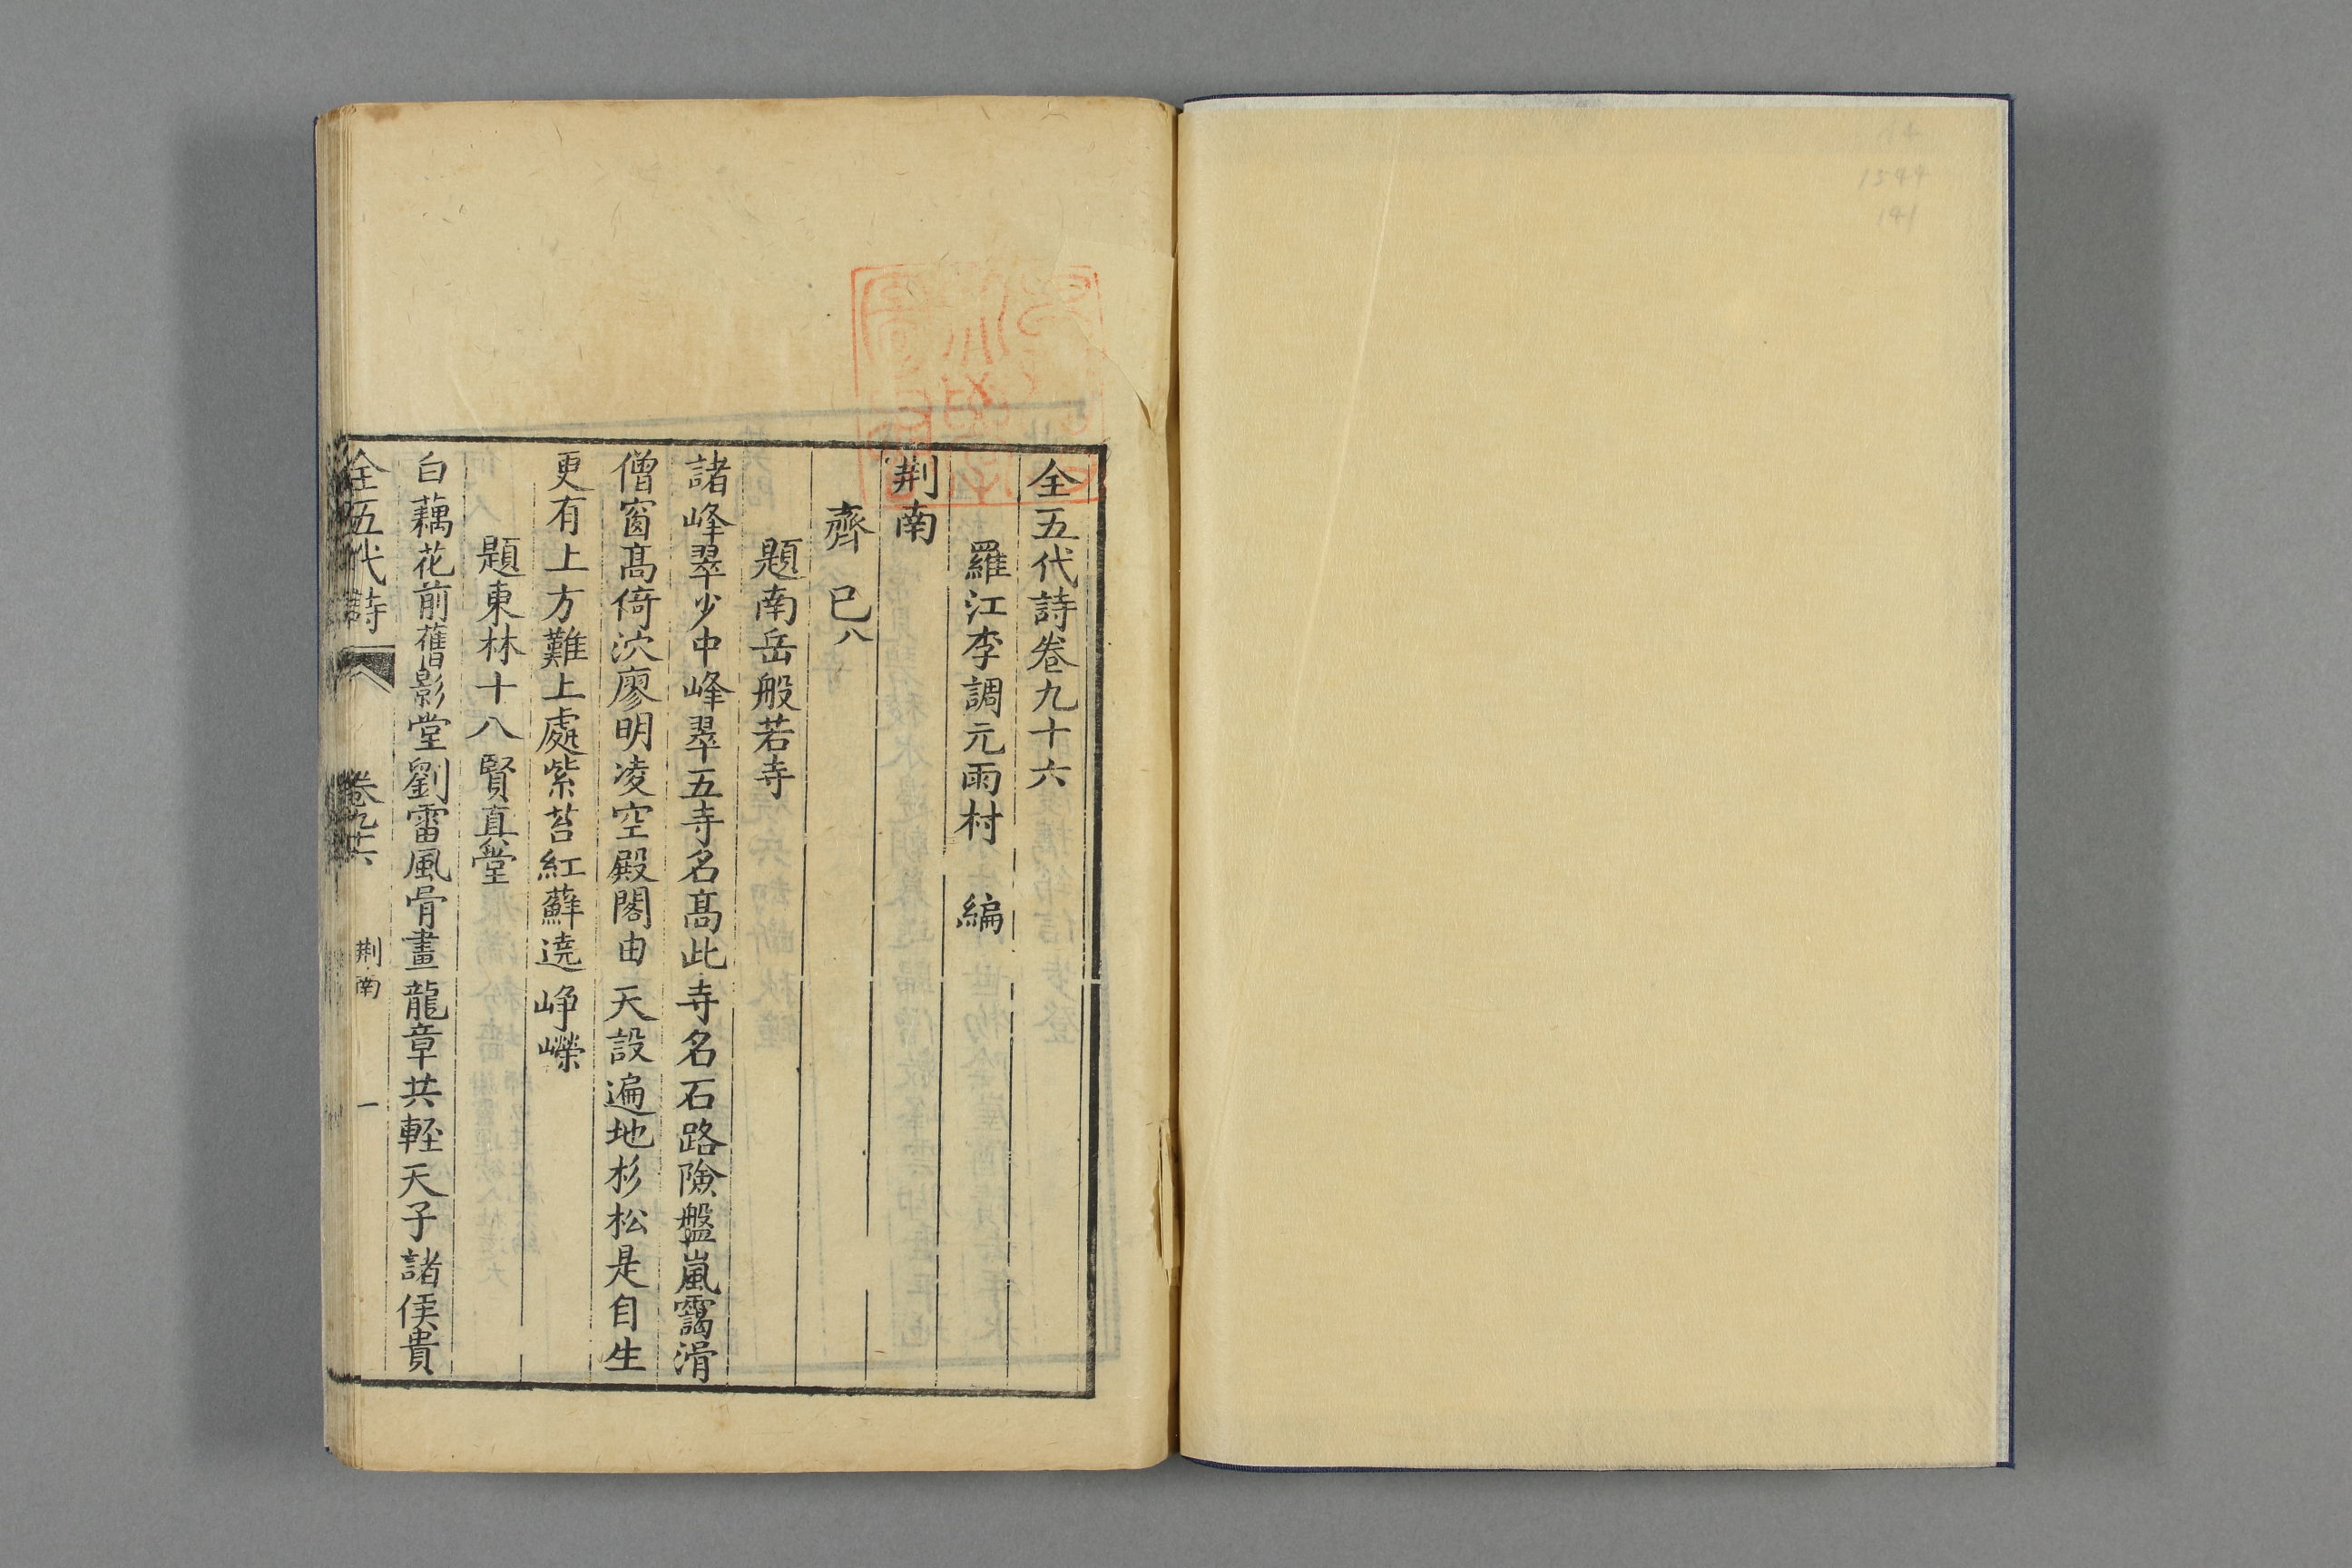 全五代詩卷九十六
羅江李調元雨村 編
荆南
齊 已八
題南岳般若寺
諸峰翠少中峰翠五寺名髙此寺名石路險盤嵐靄滑
僧窗髙倚泬廖明凌空殿閣由天設遍地杉松是自生
更有上方難上處紫苔紅蘚遶崢嶸
題東林十八賢真堂
白藕花前舊影堂劉雷風骨畫龍章共輕天子諸侯貴
全五代詩 卷九十六 荆南 一
1544
141